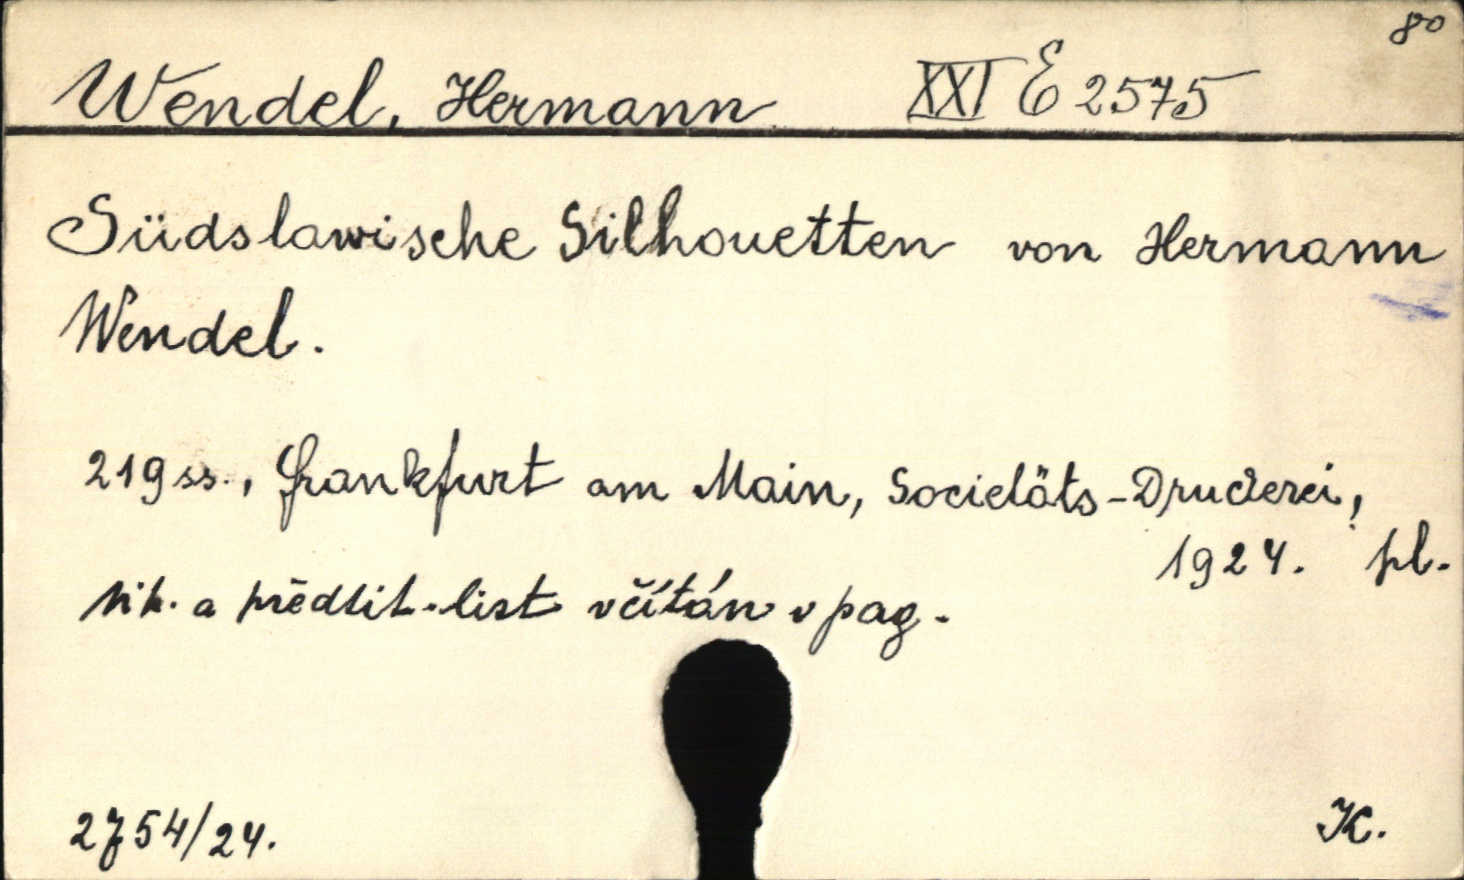 8°
Wendel, Hermann XXI E 2575
Südslawische Silhouetten von Hermann
Wendel.
219 ss., Frankfurt am Main, Societäts-Druckerei,
1924. pl.
tit. a předtit. list včítán v pag.
2754/24. K.